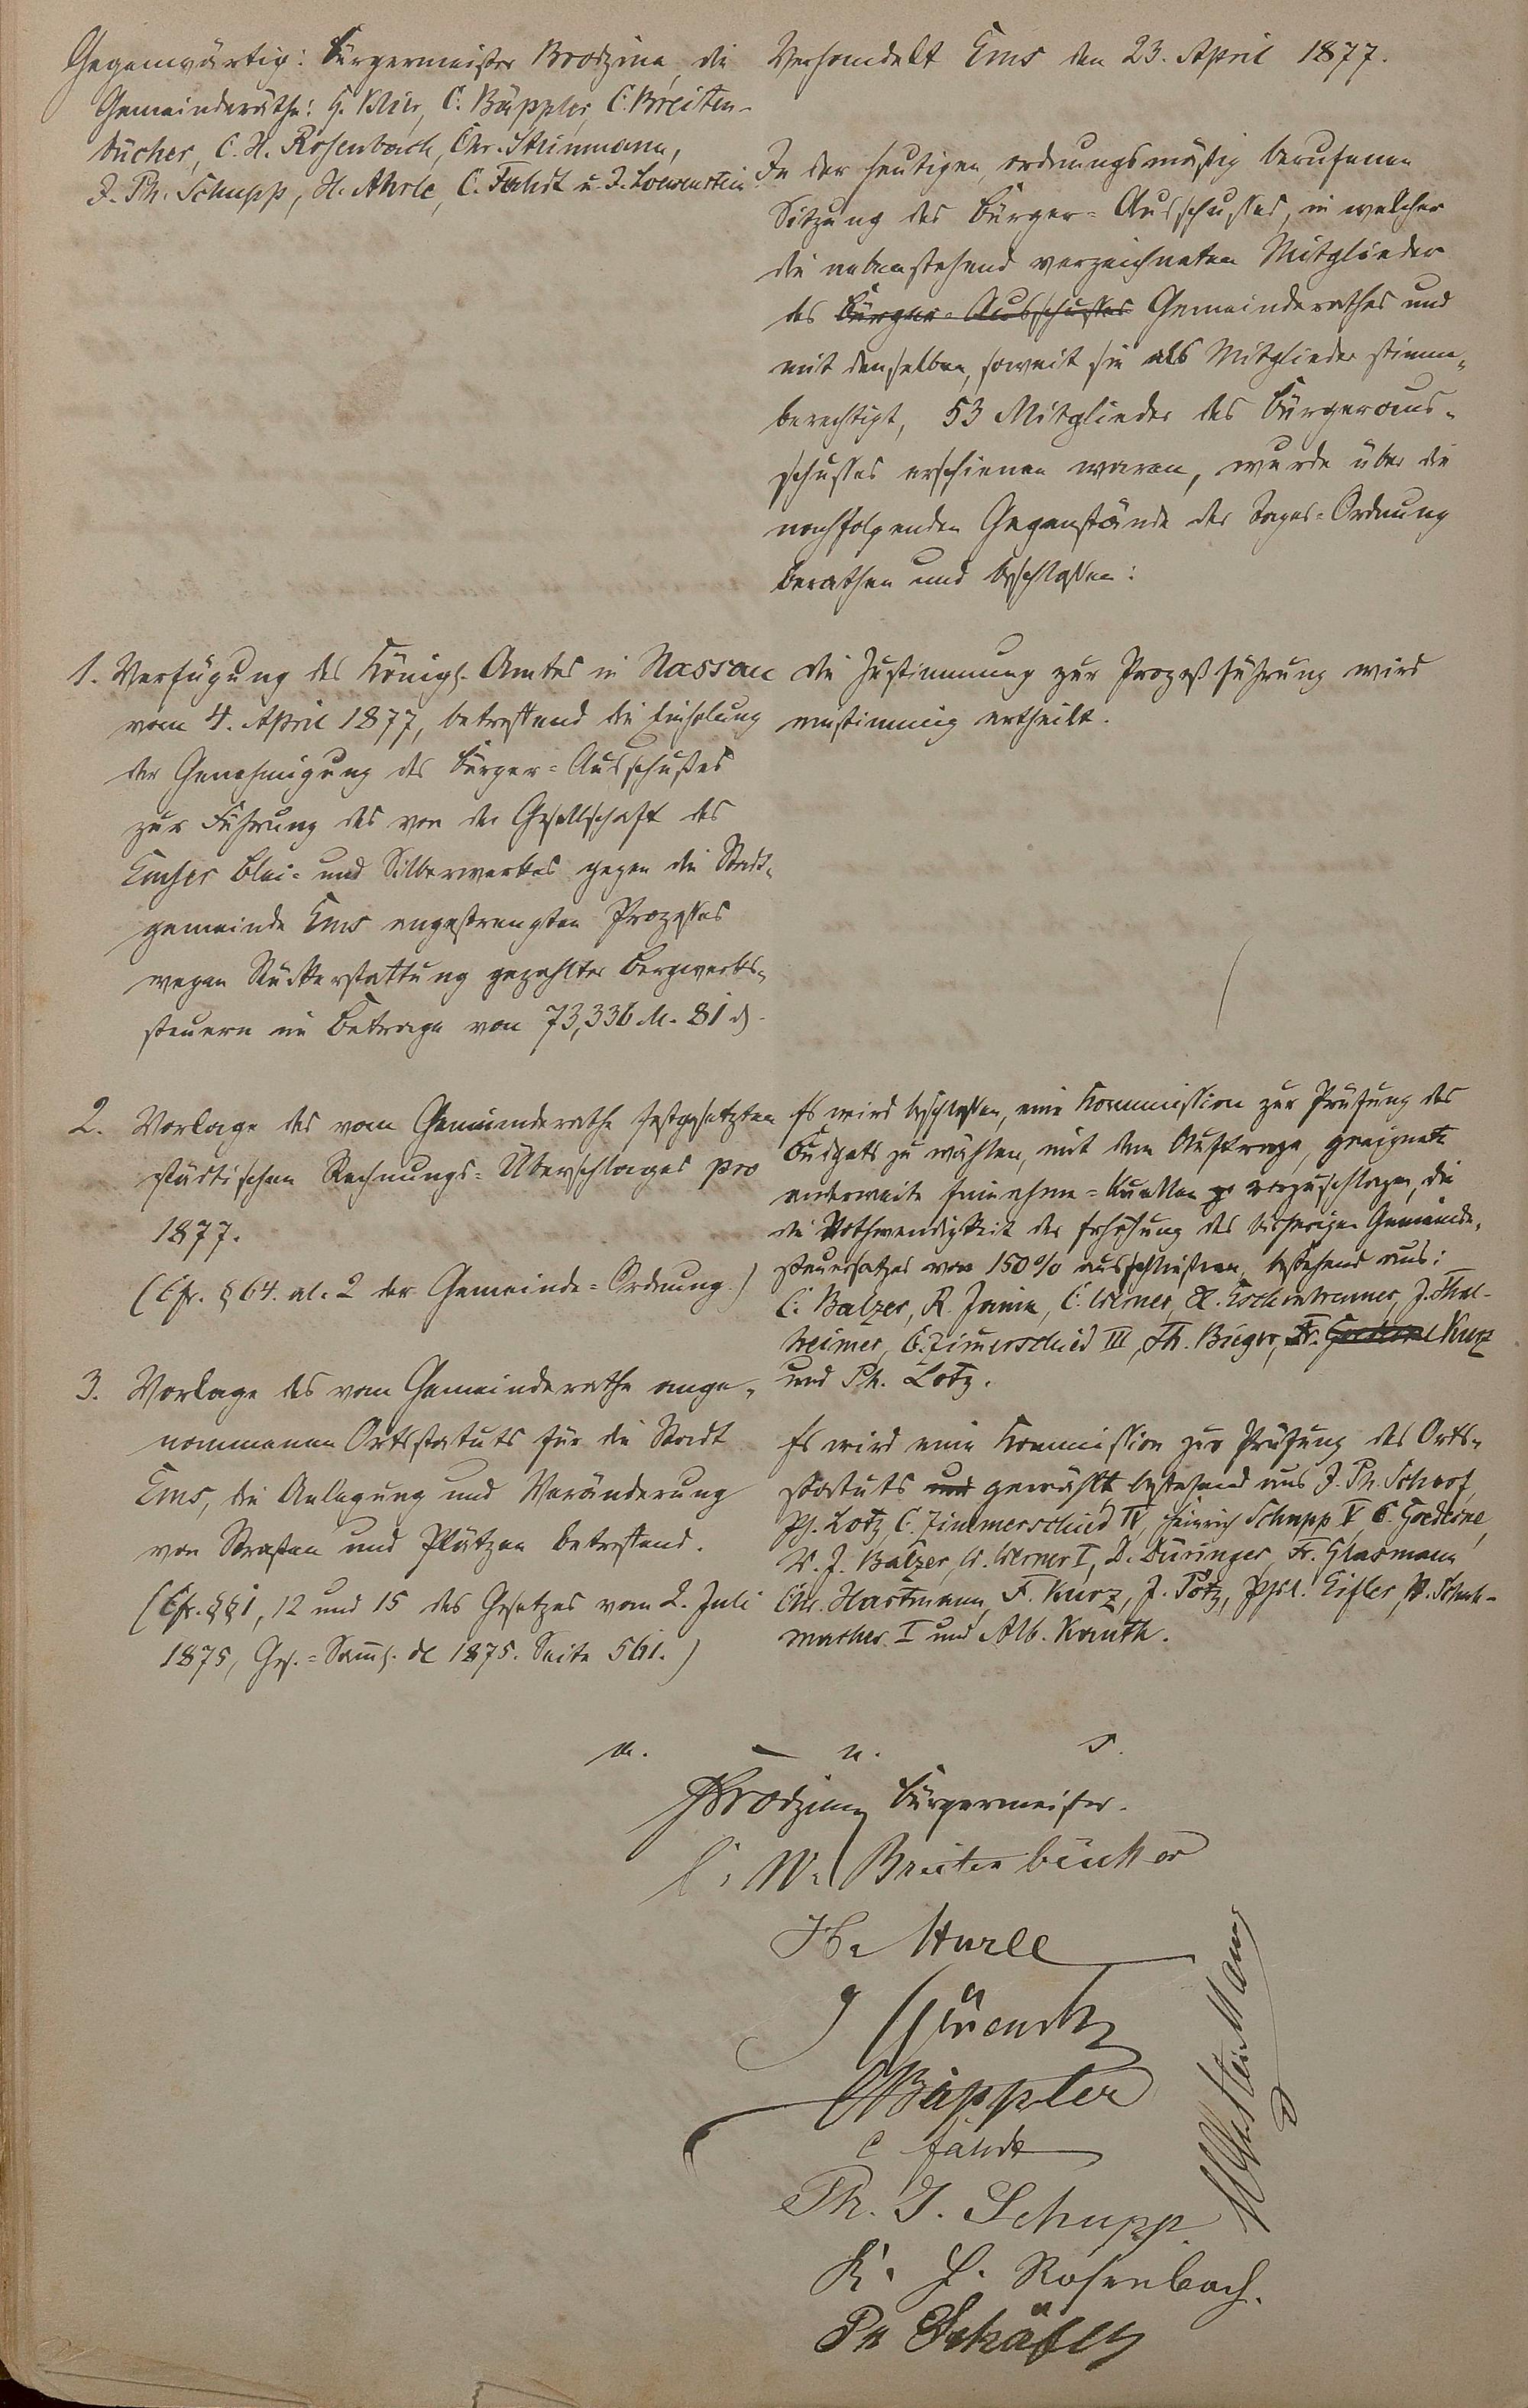 Gegenwärtig: Bürgermeister Brodzina, die
Gemeinderäthe: C. Bäppler, C. Breiten-
bücher, C. H. Rosenbach, Chr. Steinmann,
J. Ph. Schupp, H. Ahrle, C. Fahdt u. J. Loewenstein
Verhandelt Ems den 23. April 1877.
In der heutigen, ordnungsmäßig berufenen
Sitzung des Bürger-Ausschusses, in welcher
die nebenstehend verzeichneten Mitglieder
des Bürger-Ausschusses Gemeinderathes und
mit denselben, soweit sie als Mitglieder stimm-
berechtigt, 53 Mitglieder des Bürgeraus-
schusses erschienen waren, wurde über die
nachfolgenden Gegenstände der Tages-Ordnung
berathen und beschlossen:
1. Verfügung des Königl. Amtes in Nassau
vom 4. April 1877, betreffend die Einholung
der Genehmigung des Bürger-Ausschußes
zur Führung des von der Gesellschaft des
Emser Blei- und Silberwerkes gegen die Stadt-
gemeinde Ems angestrengten Prozesses
wegen Rückerstattung gezahlter Bergwerks-
steuern im Betrage von 73,336 M. 81 d.
Die Zustimmung zur Prozeßführung wird
einstimmig ertheilt.
2. Vorlage des vom Gemeinderathe festgesetzten
städtischen Rechnungs-Überschlages pro
1877.
(Cfr. § 64. al. 2 der Gemeinde-Ordnung.)
Es wird beschlossen, eine Kommission zur Prüfung des
Budgets zu wählen, mit dem Auftrage, geeignete
anderweite Einnahme-Quellen vorzuschlagen, die
die Nothwendigkeit der Erhöhung des bisherigen Gemeinde-
steuersatzes von 150% ausschließen, bestehend aus:
C. Balzer, R. Janin, C. Werner, H. Eschenbrenner, J. Thal-
heimer, C. Zimerschied III, Th. Bieger, Fr. Kurz
und Ph. Lotz.
3. Vorlage des vom Gemeinderathe ange-
nommenen Ortsstatuts für die Stadt
Ems, die Anlegung und Veränderung
von Straßen und Plätzen betreffend.
(Cfr. §§ 1, 12 und 15 des Gesetzes vom 2. Juli
1875, Ges.-Samml. de 1875. Seite 561.)
Es wird eine Kommission zur Prüfung des Orts-
statuts und gewählt bestehend aus J. Ph. Schoof,
Ph. Lotz, C. Zimmerschied IV, Heinrich Schupp V, C. Goedecke,
W. J. Balzer, W. Werner I, D. Düringer, Fr. Glasmann
Chr. Hartmann, F. Kurz, J. Pötz, Eifler, P. Schuh-
macher I und Alb. Kauth.
a. u. s.
Brodzina Bürgermeister.
C. W. Breitenbücher
H. Ahrle
C Bäppler
C Fahdt
Ph. J. Schupp.
K. H. Rosenbach.
Ph Schäfer